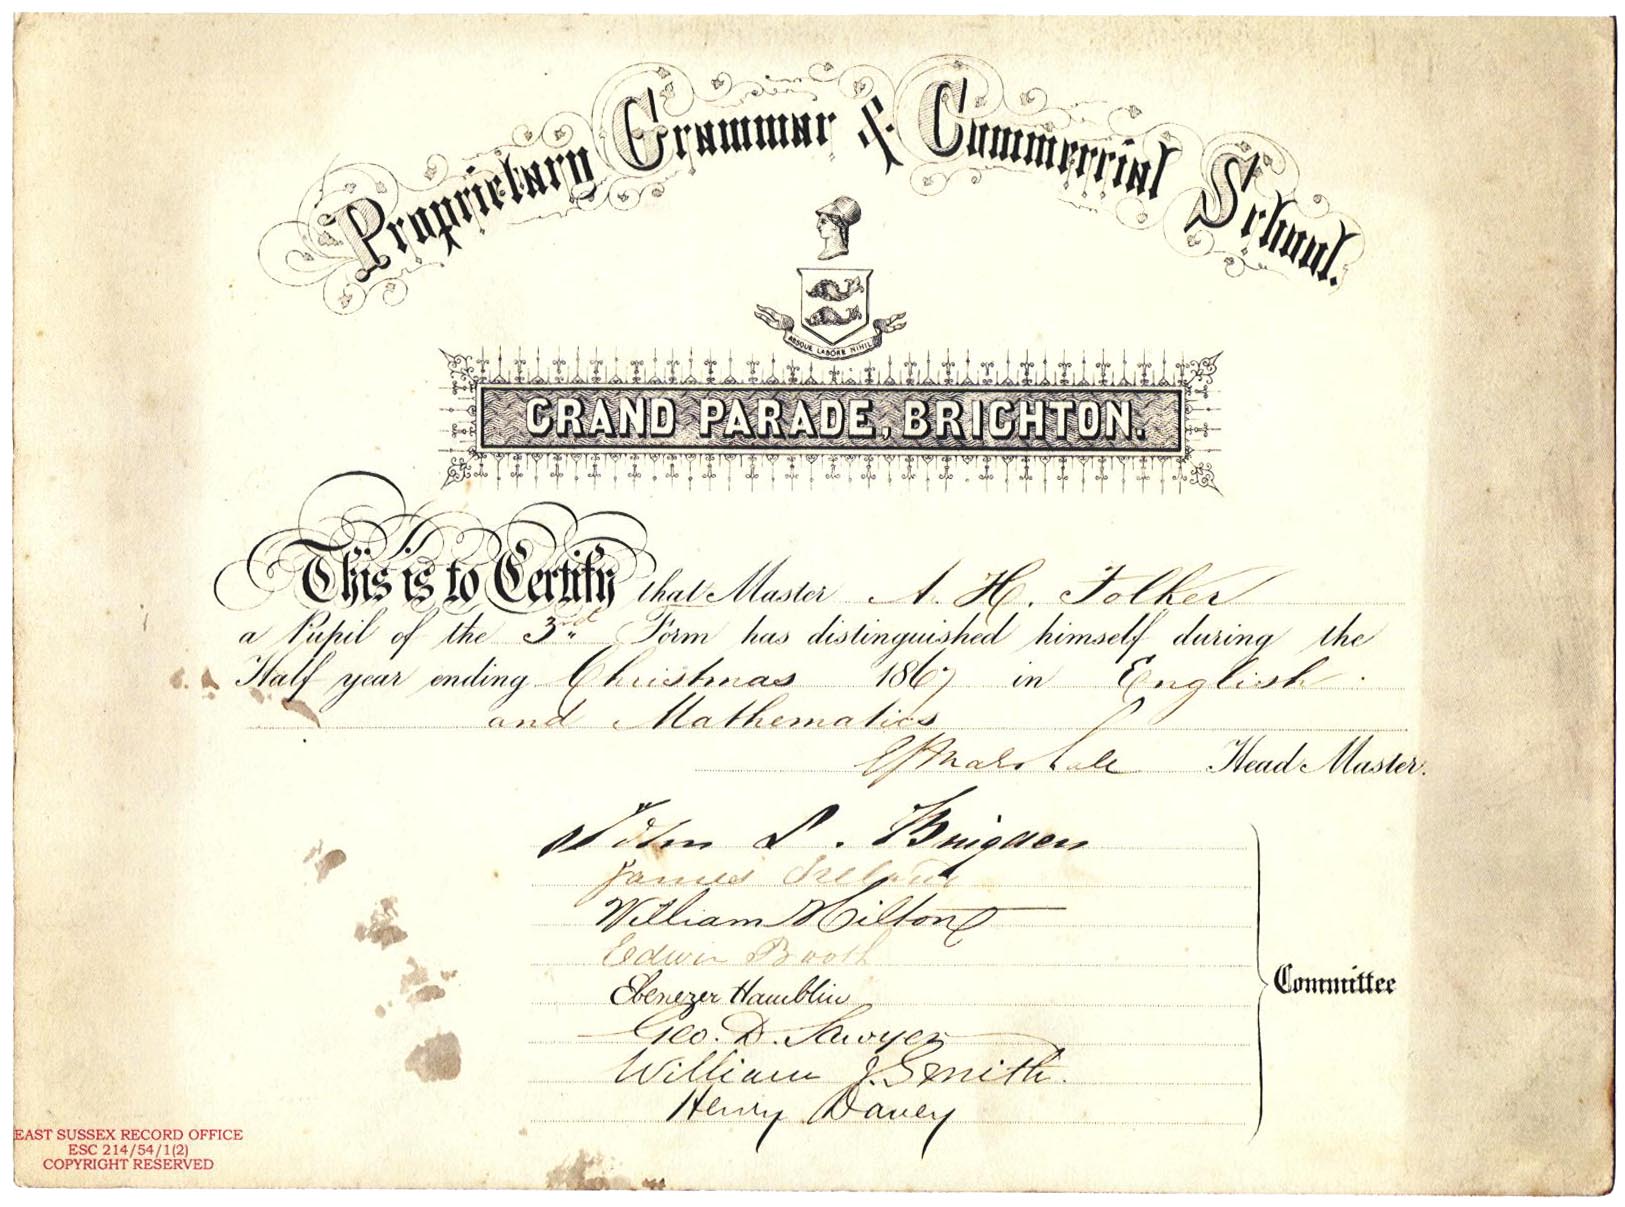 Proprietary Grammar & Commercial School.
ABSQUE LABORE NIHIL
GRAND PARADE, BRIGHTON.
This is to Certify that Master A. H. Folker
a Pupil of the 3rd Form has distinguished himself during the
Half year ending Christmas 1867 in English
and Mathematics
E J Marshall Head Master.
John L. Brigden
James Ireland
William Hilton
Edwin Booth
Ebenezer Hamblin
Geo. D. Sawyer
William J. Smith.
Henry Davey
Committee
EAST SUSSEX RECORD OFFICE
ESC 214/54/1(2)
COPYRIGHT RESERVED